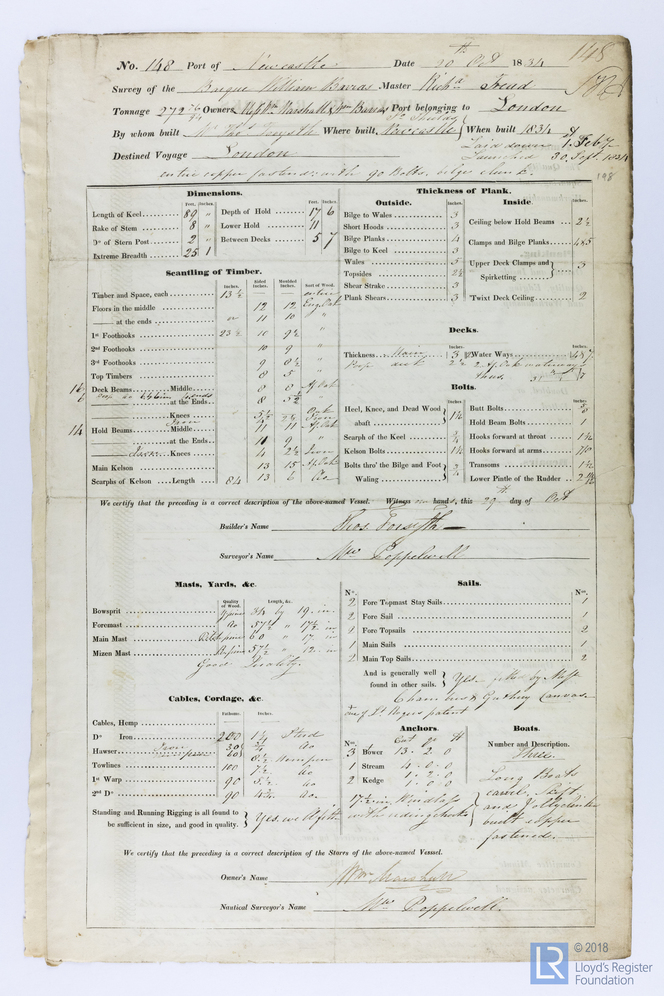 No. 148 Port of Newcastle Date 20th Oct 1834
148
Survey of the Brigue William Barras Master Richd Freud
Tonnage 272 Owners Wm Marshall & Wm Barras Port belonging to London
By whom built Mr Thos Forsyth Where built, Newcastle When built 1834
Laid down 1 Feby
Destined Voyage London Launched 30 Sept. 1834
entire copper fastened with 90 Bolts, edges clench.
198
Dimensions.
Feet. Inches. Feet. Inches.
Length of Keel 89 " Depth of Hold 17 6
Rake of Stem 8 " Lower Hold 11
Do of Stern Post 2 " Between Decks 5 7
Extreme Breadth 25 1
Scantling of Timber.
Inches. Sided Inches. Moulded Inches. Sort of Wood.
Timber and Space, each 13½
Floors in the middle 12 12 Eng Oak
at the ends 11 10 "
1st Foothooks 23½ 10 9½ "
2nd Foothooks 10 9 "
3rd Foothooks 9 8½ "
Top Timbers 8 5 "
Deck Beams Middle 8 8 Af Oak
at the Ends 8 5½
Knees 5½
Iron
14 Hold Beams Middle 11 11 Af Oak
at the Ends 10 9 "
Knees 4 2½ Iron
Main Kelson 13 15 Af Oak
Scarphs of Kelson Length 84 13 6 do
Thickness of Plank.
Outside. Inches.
Bilge to Wales 3
Short Hoods 3
Bilge Planks 4
Bilge to Keel 3
Wales 5
Topsides 2½
Shear Strake 3
Plank Shears 3
Inside. Inches.
Ceiling below Hold Beams 2½
Clamps and Bilge Planks 4&3
Upper Deck Clamps and Spirketting 3
'Twixt Deck Ceiling 2
Decks.
Inches. Inches.
Thickness 3 Water Ways
Poop deck 2½
Bolts.
Inches. Inches.
Heel, Knee, and Dead Wood abaft 1⅛
Scarph of the Keel ¾
Kelson Bolts 1⅛
Bolts thro' the Bilge and Foot Waling ¾
Butt Bolts
Hold Beam Bolts 1
Hooks forward at throat 1⅛
Hooks forward at arms
Transoms 1½
Lower Pintle of the Rudder
We certify that the preceding is a correct description of the above-named Vessel. Witness our hands, this 29th day of Oct
Builder's Name Thos Forsyth
Surveyor's Name Mw Poppelwell
Masts, Yards, &c.
Quality of Wood. Length, &c.
Bowsprit 34 by 19 in
Foremast do 57½ " 17½ in
Main Mast 60 " 17 in
Mizen Mast 57½ " 12 in
Good Quality.
Sails.
No. No.
2 Fore Topmast Stay Sails 1
2 Fore Sail 1
2 Fore Topsails 2
1 Main Sails 1
2 Main Top Sails 2
And is generally well found in other sails. Yes
Canvas
patent
Cables, Cordage, &c.
Fathoms. Inches.
Cables, Hemp
Do Iron 200 1¼ Stud
Hawser
Towlines 100 7½ do
1st Warp 90 5½ do
2nd Do 90 4¾ do
Standing and Running Rigging is all found to be sufficient in size, and good in quality. Yes
Anchors.
No. Cwt qr lb
3 Bower 13.2.0
1 Stream 4.0.0
2 Kedge 1.2.0
1.0.0
Windlass
Boats.
Number and Description.
Three.
Long Boat
carvel, Skiff
and Jolly clinker
built copper
fastened.
We certify that the preceding is a correct description of the Stores of the above-named Vessel.
Owner's Name Wm Marshall
Nautical Surveyor's Name Mw Poppelwell
LR © 2018
Lloyd's Register
Foundation